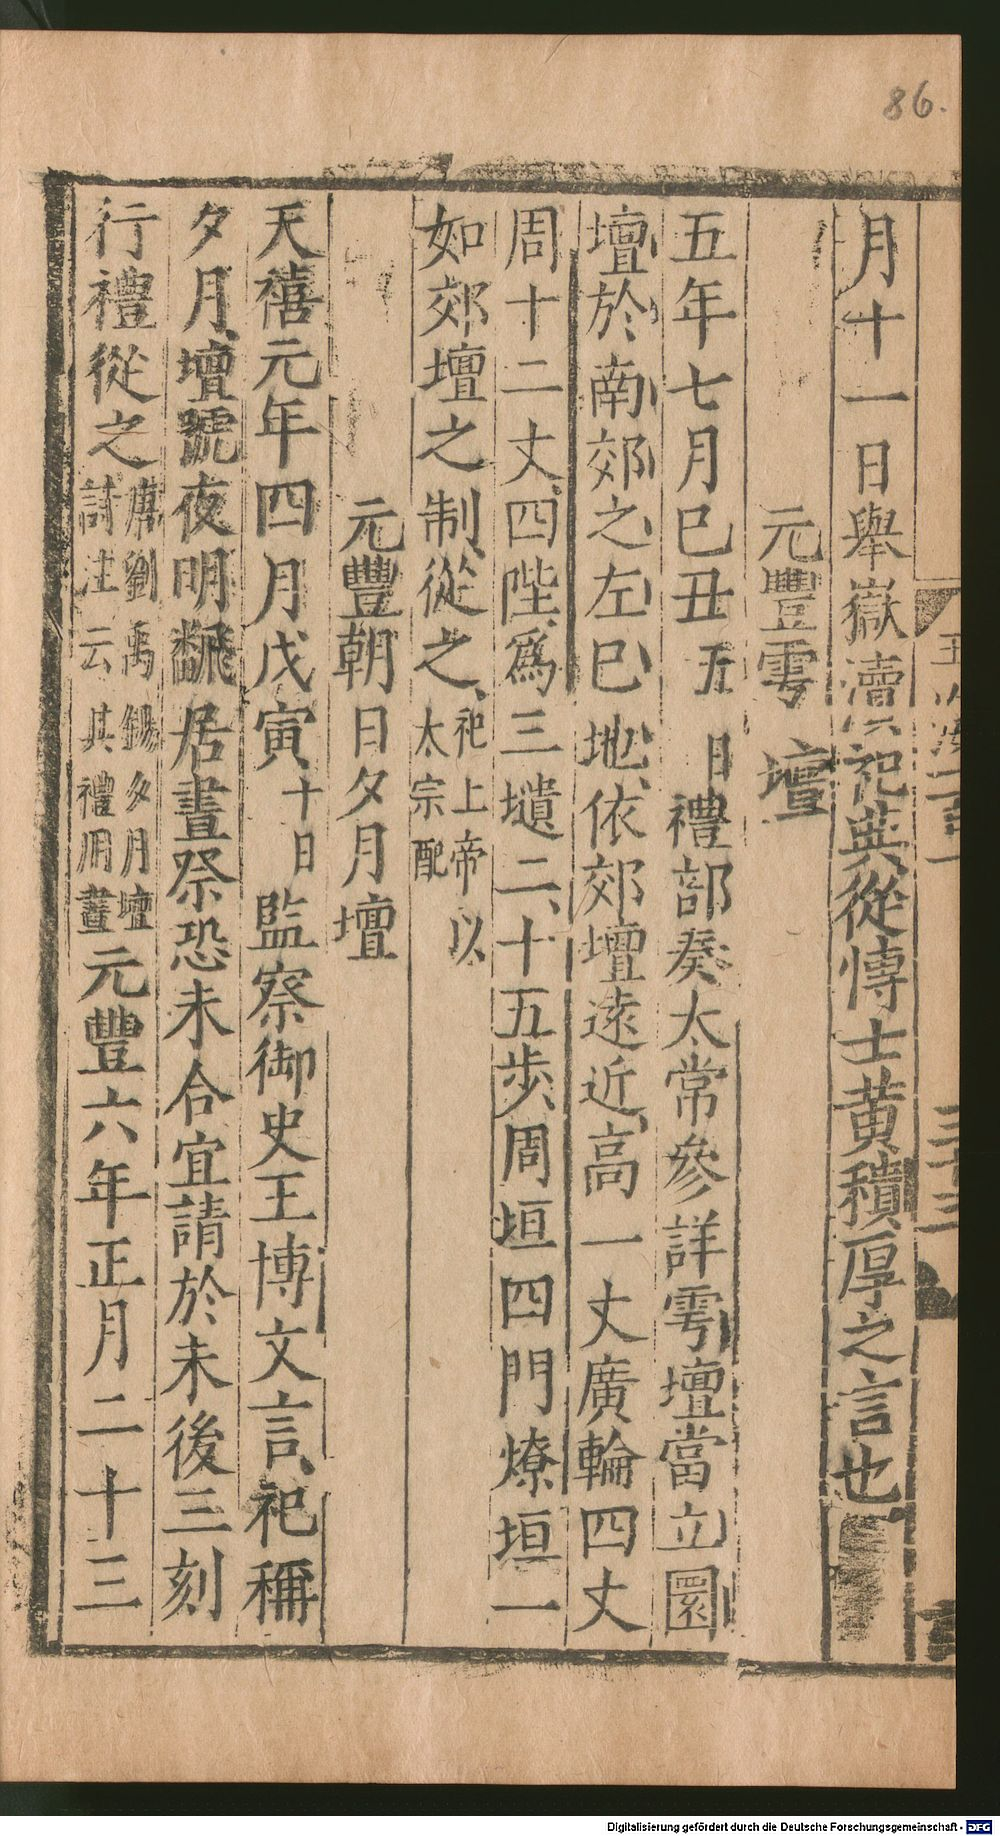 86.
月十一日舉嶽瀆祀典從博士黄積厚之言也
元豐雩壇
五年七月巳丑五日禮部奏太常參詳雩壇當立圜
壇於南郊之左巳地依郊壇遠近高一丈廣輪四丈
周十二丈四陛爲三壝二十五步周垣四門燎垣一
如郊壇之制從之祀上帝以太宗配
元豐朝日夕月壇
天禧元年四月戊寅十日監察御史王博文言祀稱
夕月壇號夜明翻居晝祭恐未合宜請於未後三刻
行禮從之席劉禹錫夕月壇詩注云其禮用晝元豐六年正月二十三
三十三
Digitalisierung gefördert durch die Deutsche Forschungsgemeinschaft - DFG